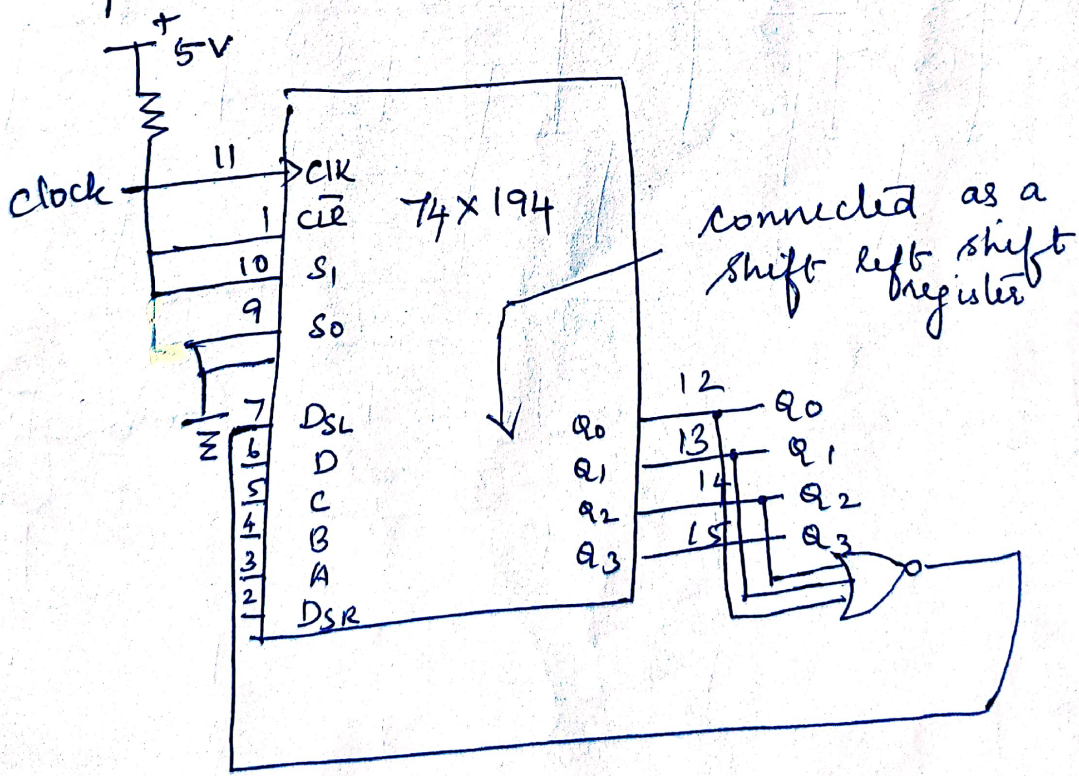 +
5V
clock
11
CLK
1
CLR̅
74X194
10
S1
9
S0
connected as a
shift left shift
register
7
DSL
6
D
5
C
4
B
3
A
2
DSR
12
Q0
Q0
13
Q1
Q1
14
Q2
Q2
15
Q3
Q3